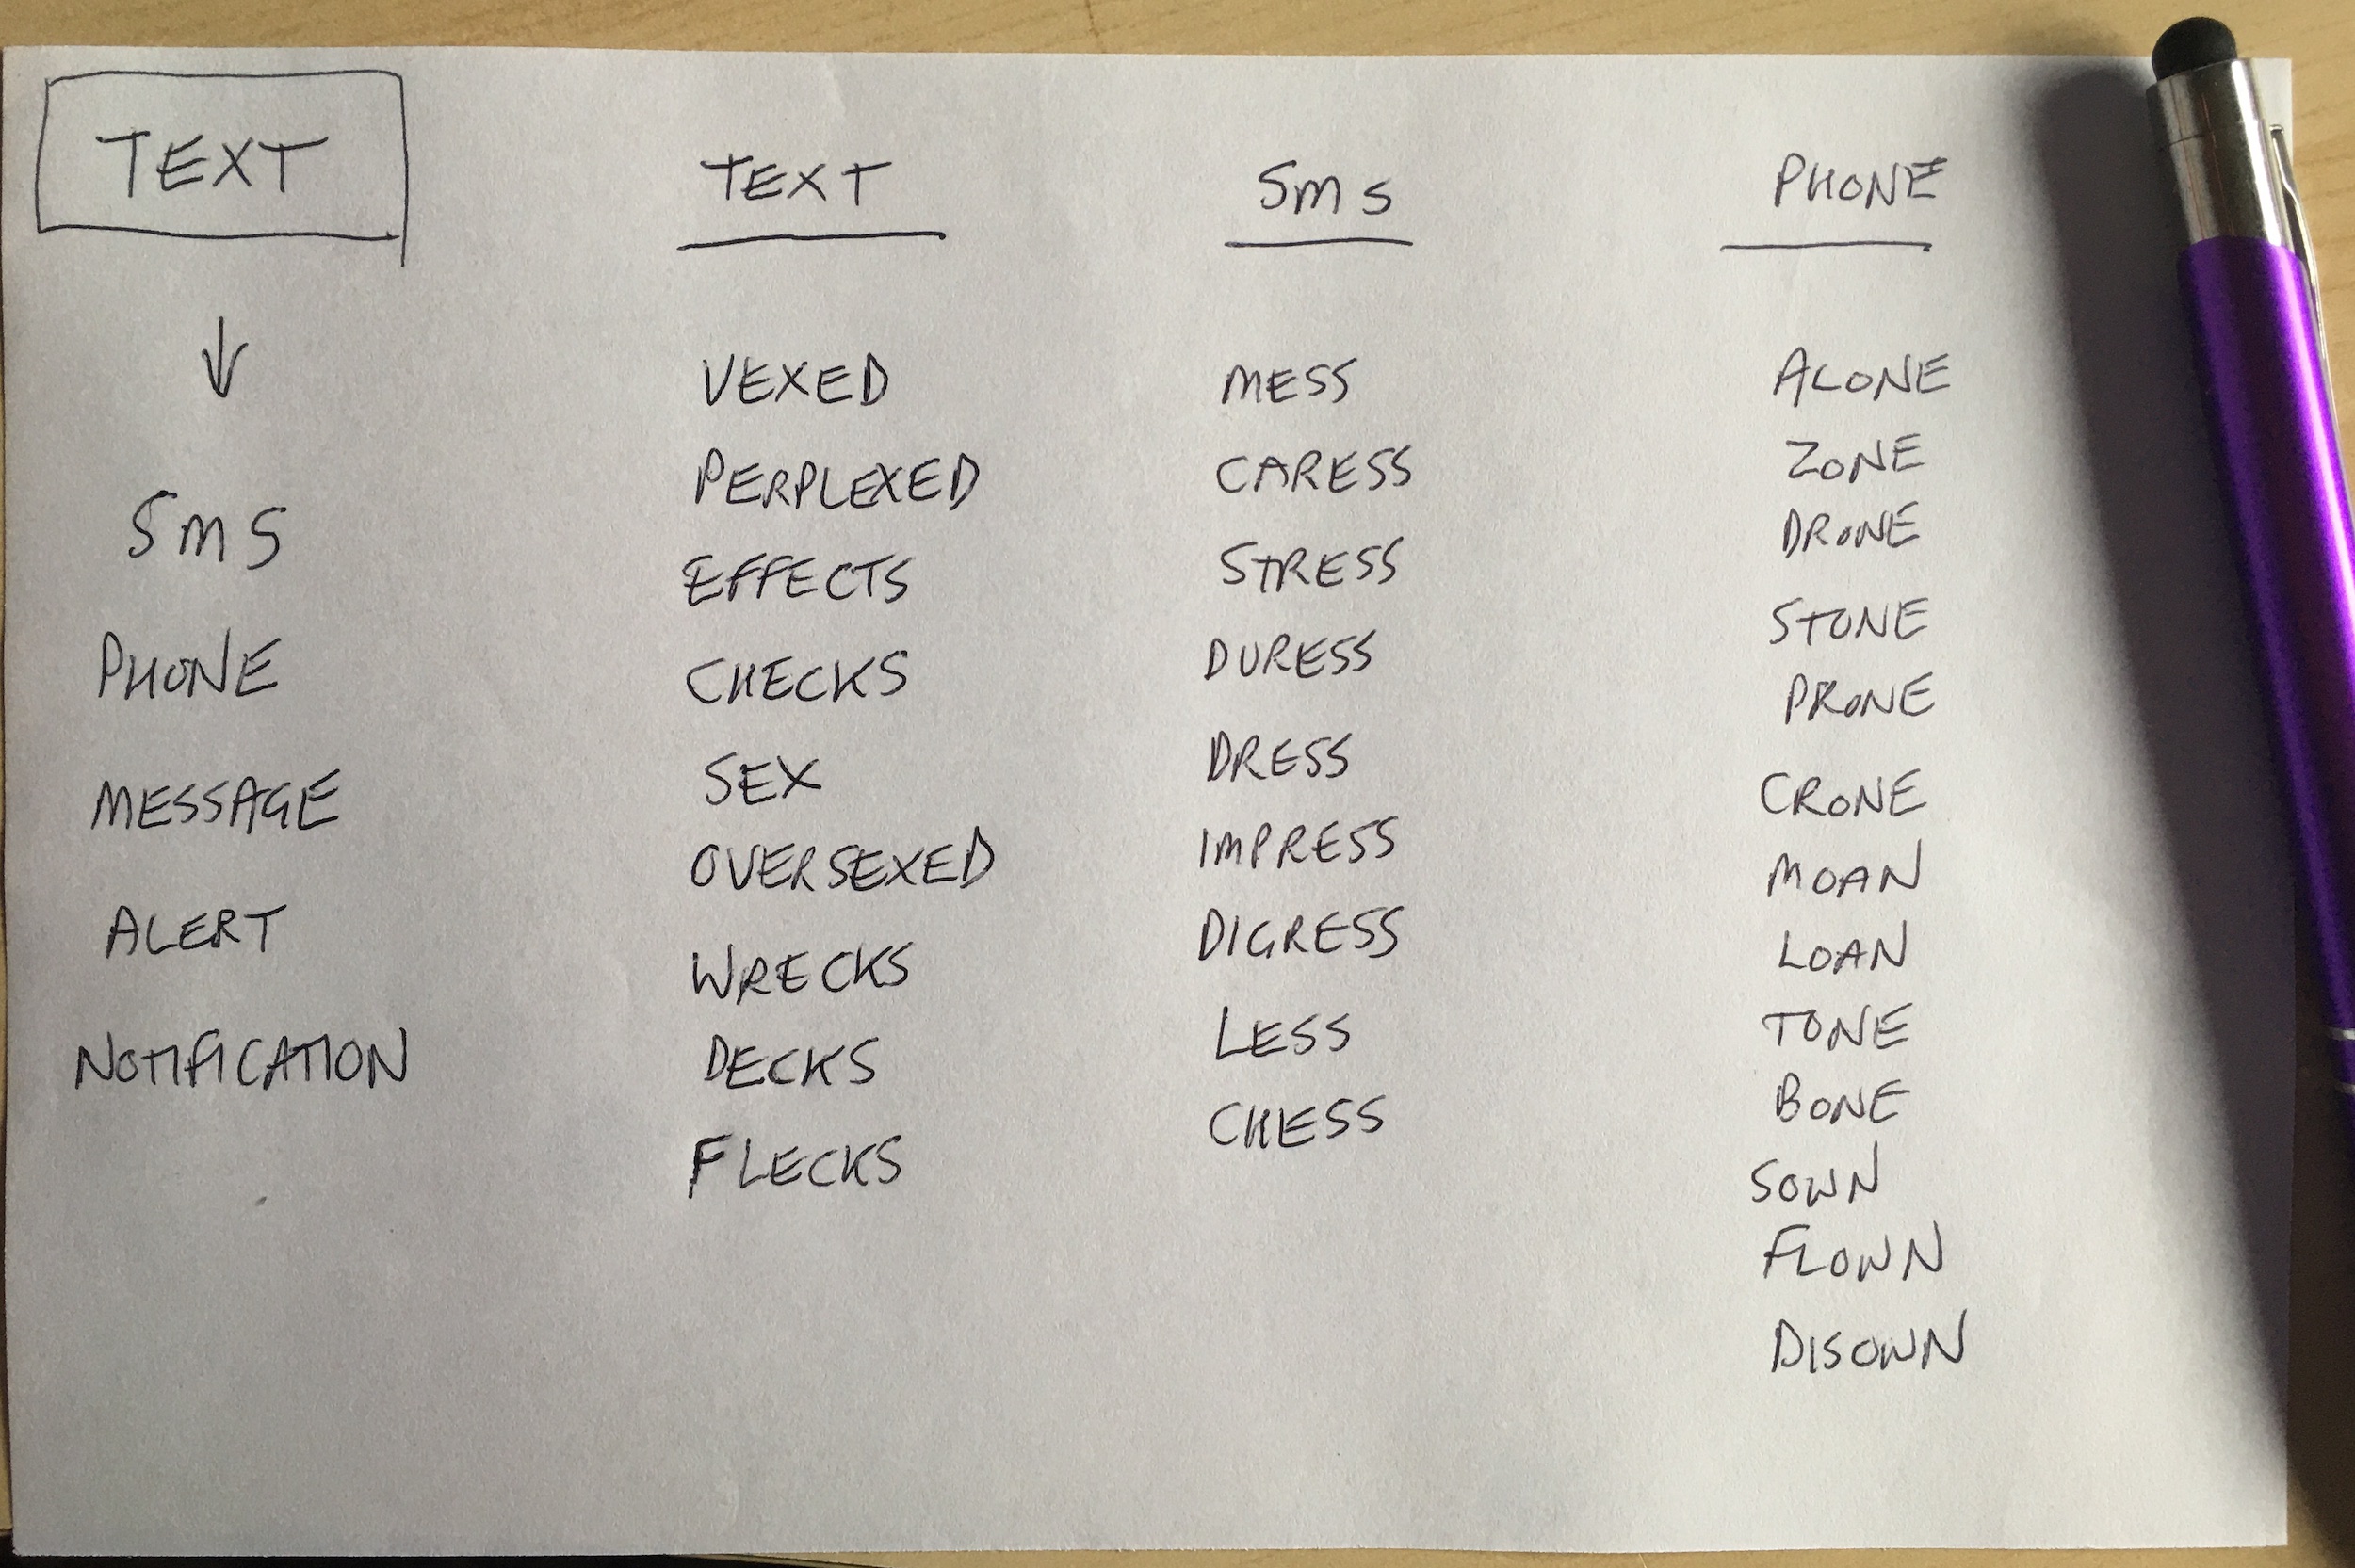 TEXT
↓
SMS
PHONE
MESSAGE
ALERT
NOTIFICATION
TEXT
VEXED
PERPLEXED
EFFECTS
CHECKS
SEX
OVERSEXED
WRECKS
DECKS
FLECKS
SMS
MESS
CARESS
STRESS
DURESS
DRESS
IMPRESS
DIGRESS
LESS
CHESS
PHONE
ALONE
ZONE
DRONE
STONE
PRONE
CRONE
MOAN
LOAN
TONE
BONE
SOWN
FLOWN
DISOWN